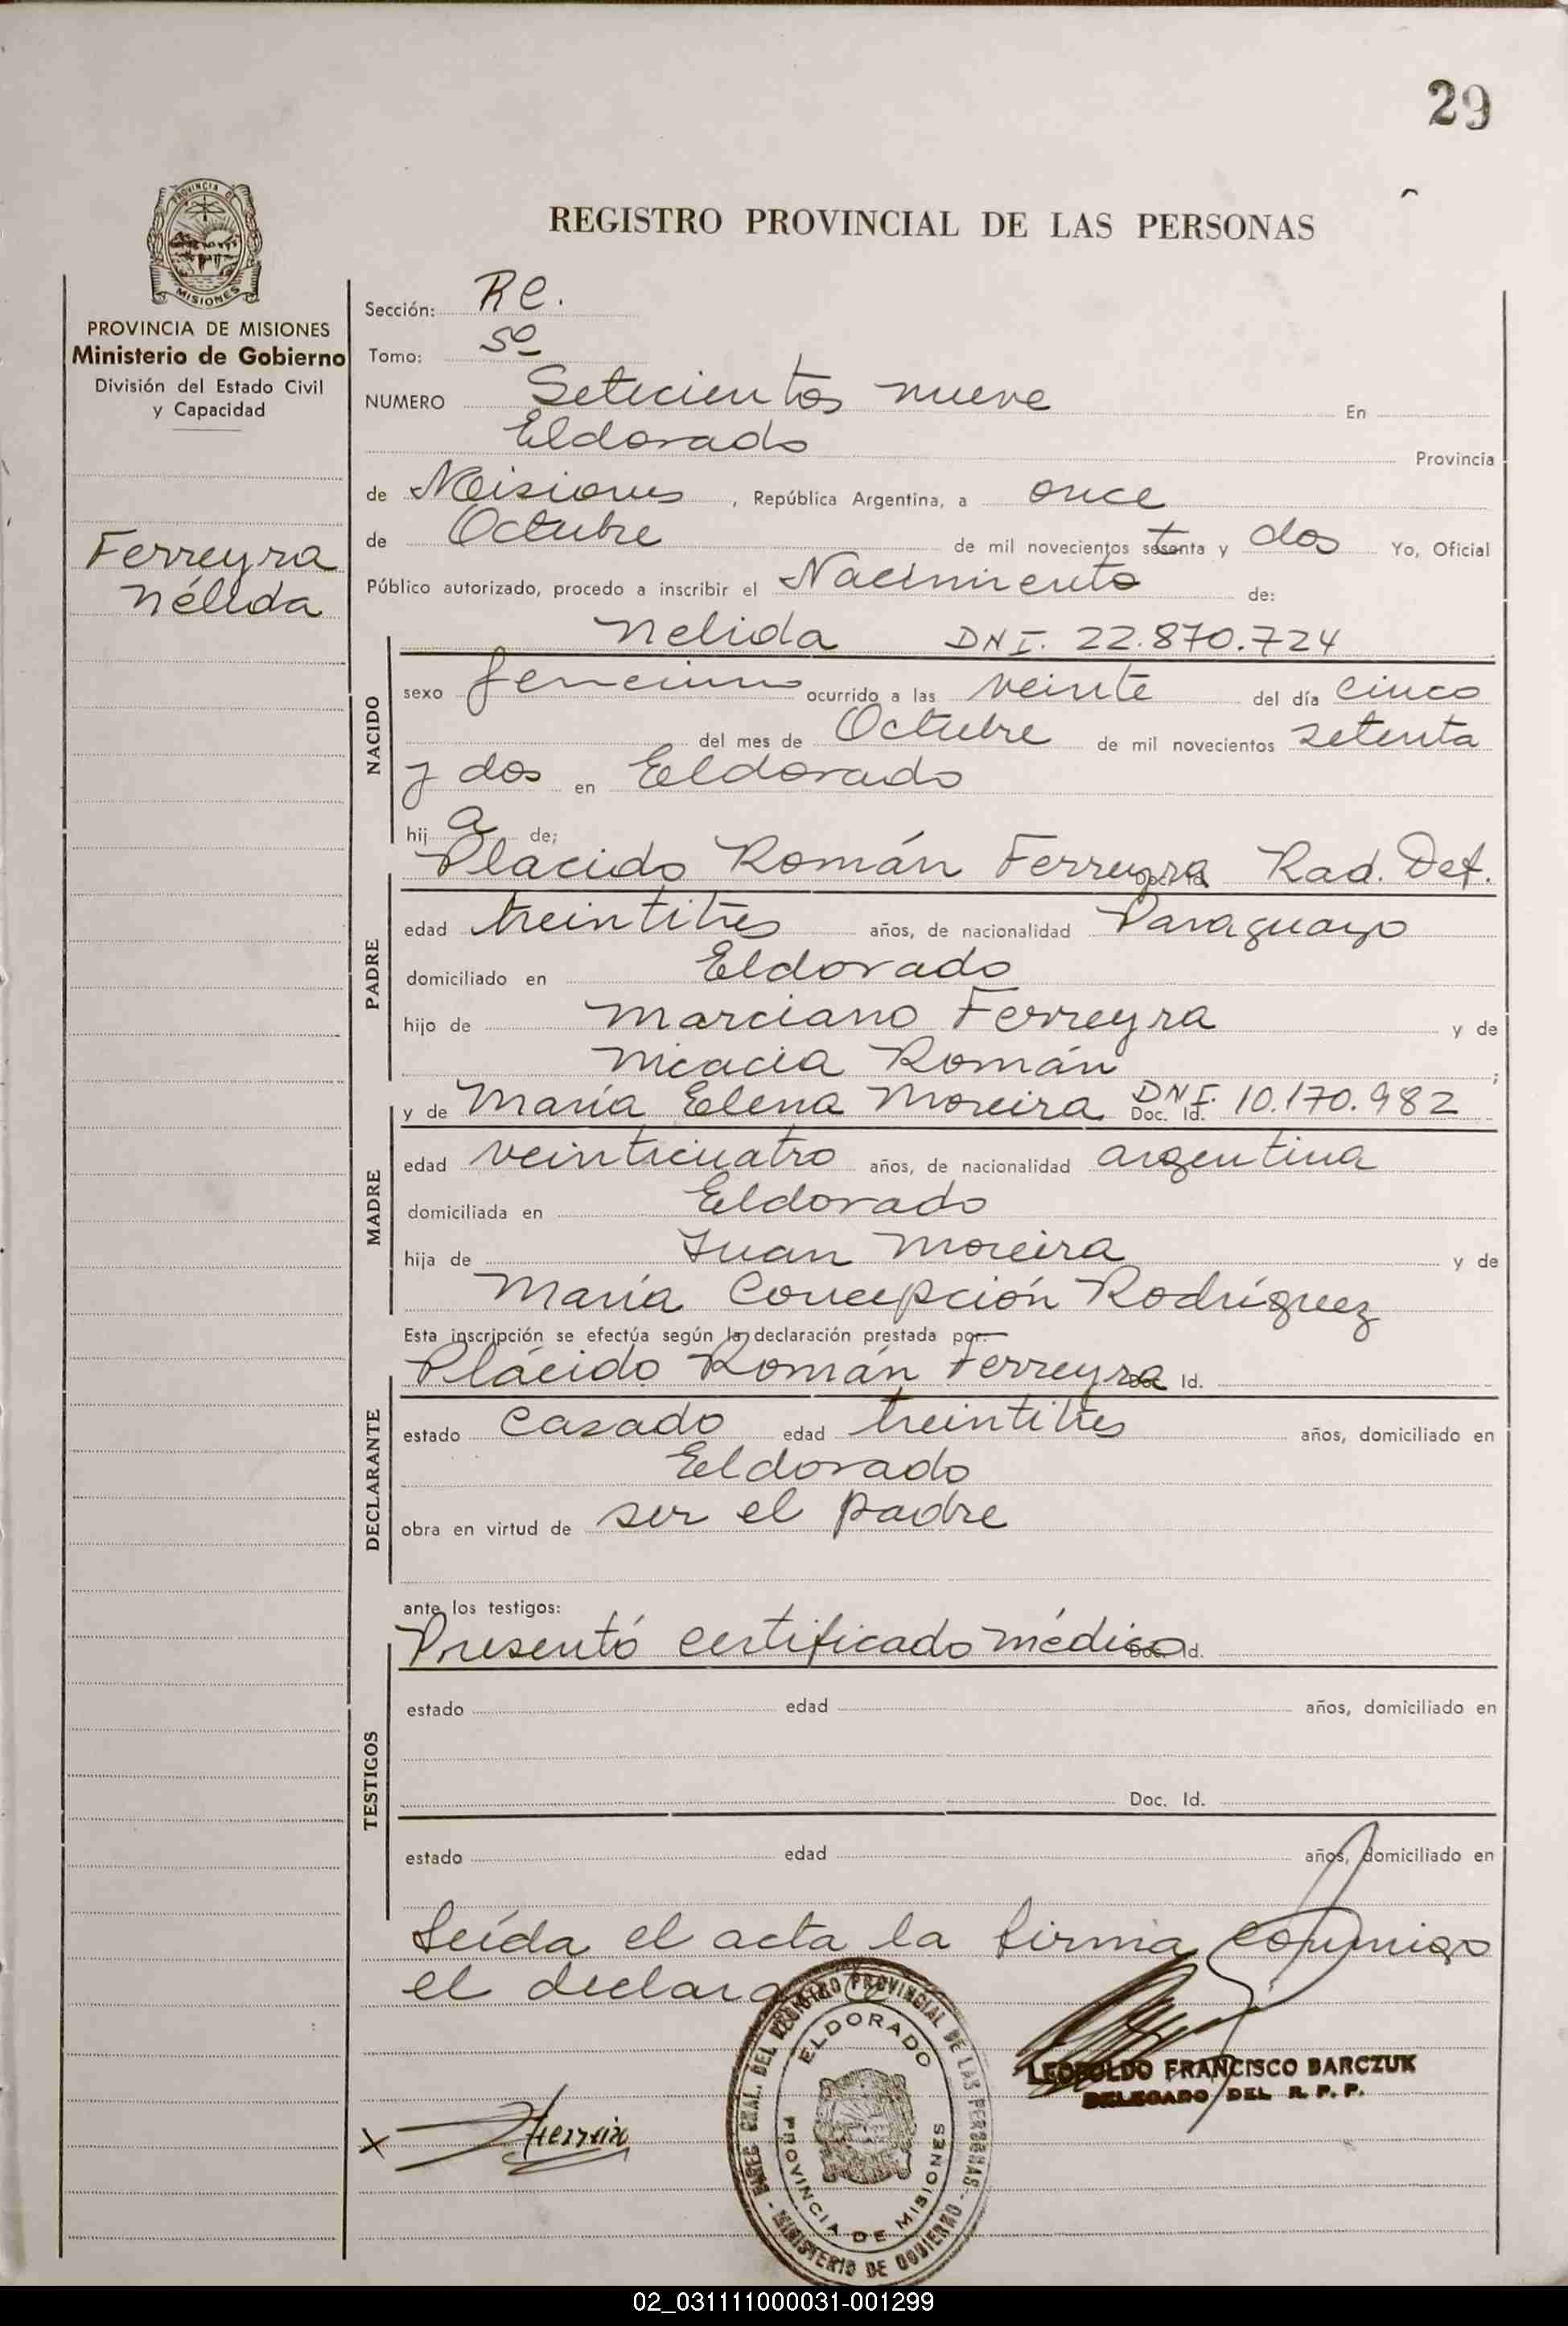 29
PROVINCIA DE
MISIONES
PROVINCIA DE MISIONES
Ministerio de Gobierno
División del Estado Civil
y Capacidad
Ferreyra
Nélida
REGISTRO PROVINCIAL DE LAS PERSONAS
Sección: RC.
Tomo: 5º
NUMERO Setecientos nueve En
Eldorado Provincia
de Misiones, República Argentina, a once
de Octubre de mil novecientos setenta y dos Yo, Oficial
Público autorizado, procedo a inscribir el Nacimiento de:
Nelida DNI. 22.870.724
NACIDO
sexo femenino ocurrido a las veinte del día cinco
del mes de Octubre de mil novecientos setenta
y dos en Eldorado
hij a de;
Plácido Román Ferreyra Rad. Def.
PADRE
edad treintitres años, de nacionalidad Paraguayo
domiciliado en Eldorado
hijo de Marciano Ferreyra y de
Nicacia Román ;
y de María Elena Moreira Doc. Id. DNI. 10.170.982
MADRE
edad veinticuatro años, de nacionalidad argentina
domiciliada en Eldorado
hija de Juan Moreira y de
María Concepción Rodríguez
Esta inscripción se efectúa según la declaración prestada por:
Plácido Román Ferreyra Doc. Id.
DECLARANTE
estado casado edad treintitres años, domiciliado en
Eldorado
obra en virtud de ser el padre
ante los testigos:
Presentó certificado médico Doc. Id.
TESTIGOS
estado edad años, domiciliado en
Doc. Id.
estado edad años, domiciliado en
Leída el acta la firma conmigo
el declara
GRAL. DEL REGISTRO PROVINCIAL DE LAS PERSONAS - MINISTERIO DE GOBIERNO -
ELDORADO
PROVINCIA DE MISIONES
LEOPOLDO FRANCISCO BARCZUK
DELEGADO DEL R. P. P.
x
02_031111000031-001299